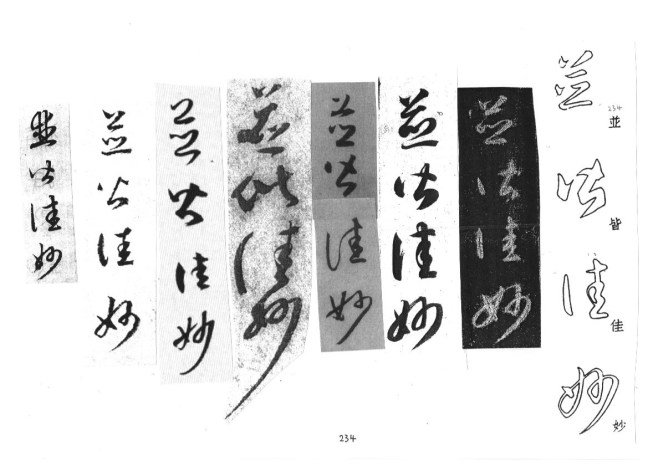 234
並皆佳妙
並皆佳妙
並皆佳妙
並皆佳妙
並皆佳妙
並皆佳妙
並皆佳妙
並皆佳妙
並皆佳妙
234